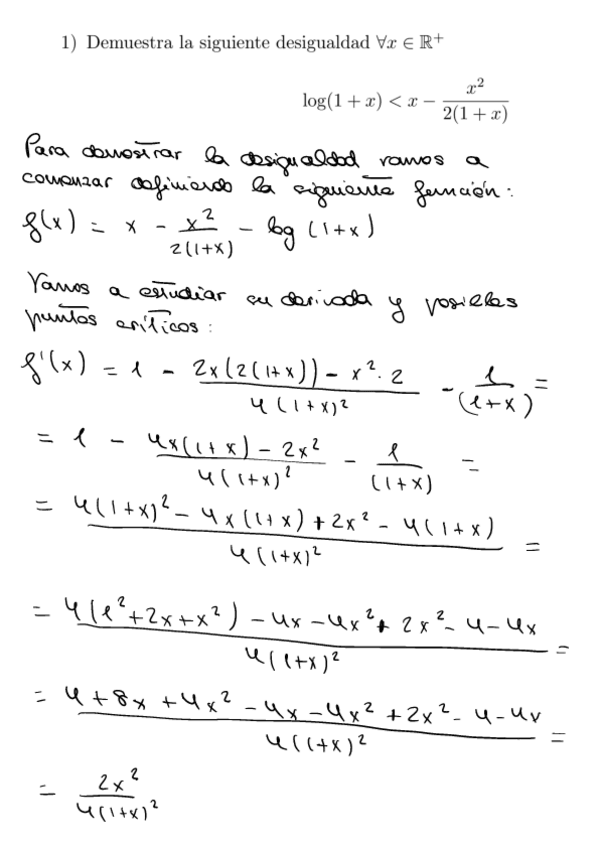 1) Demuestra la siguiente desigualdad ∀x ∈ ℝ⁺
log(1 + x) < x − x²/(2(1 + x))
Para demostrar la desigualdad vamos a
comenzar definiendo la siguiente función:
f(x) = x - x²/(2(1+x)) - log (1+x)
Vamos a estudiar su derivada y posibles
puntos críticos:
f'(x) = 1 - (2x(2(1+x)) - x²·2)/(4(1+x)²) - 1/(1+x) =
= 1 - (4x(1+x) - 2x²)/(4(1+x)²) - 1/(1+x) =
= (4(1+x)² - 4x(1+x) + 2x² - 4(1+x))/(4(1+x)²) =
= (4(1²+2x+x²) - 4x - 4x² + 2x² - 4 - 4x)/(4(1+x)²) =
= (4 + 8x + 4x² - 4x - 4x² + 2x² - 4 - 4x)/(4(1+x)²) =
= 2x²/(4(1+x)²)